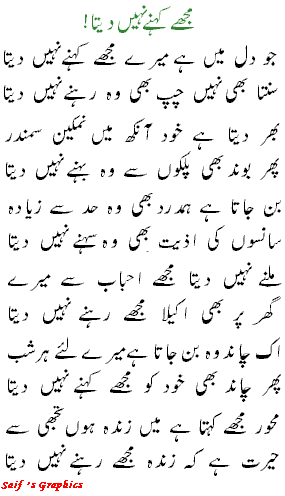 مجھے کہنے نہیں دیتا!
جو دل میں ہے میرے مجھے کہنے نہیں دیتا
سنتا بھی نہیں چپ بھی وہ رہنے نہیں دیتا
بھر دیتا ہے خود آنکھ میں نمکین سمندر
پھر بوند بھی پلکوں سے وہ بہنے نہیں دیتا
بن جاتا ہے ہمدرد بھی وہ حد سے زیادہ
سانسوں کی اذیت بھی وہ سہنے نہیں دیتا
ملنے نہیں دیتا مجھے احباب سے میرے
گھر پر بھی اکیلا مجھے رہنے نہیں دیتا
اک چاند وہ بن جاتا ہے میرے لئے ہر شب
پھر چاند بھی خود کو مجھے کہنے نہیں دیتا
محور مجھے کہتا ہے میں زندہ ہوں تجھی سے
حیرت ہے کہ زندہ مجھے رہنے نہیں دیتا
Saif 's Graphics